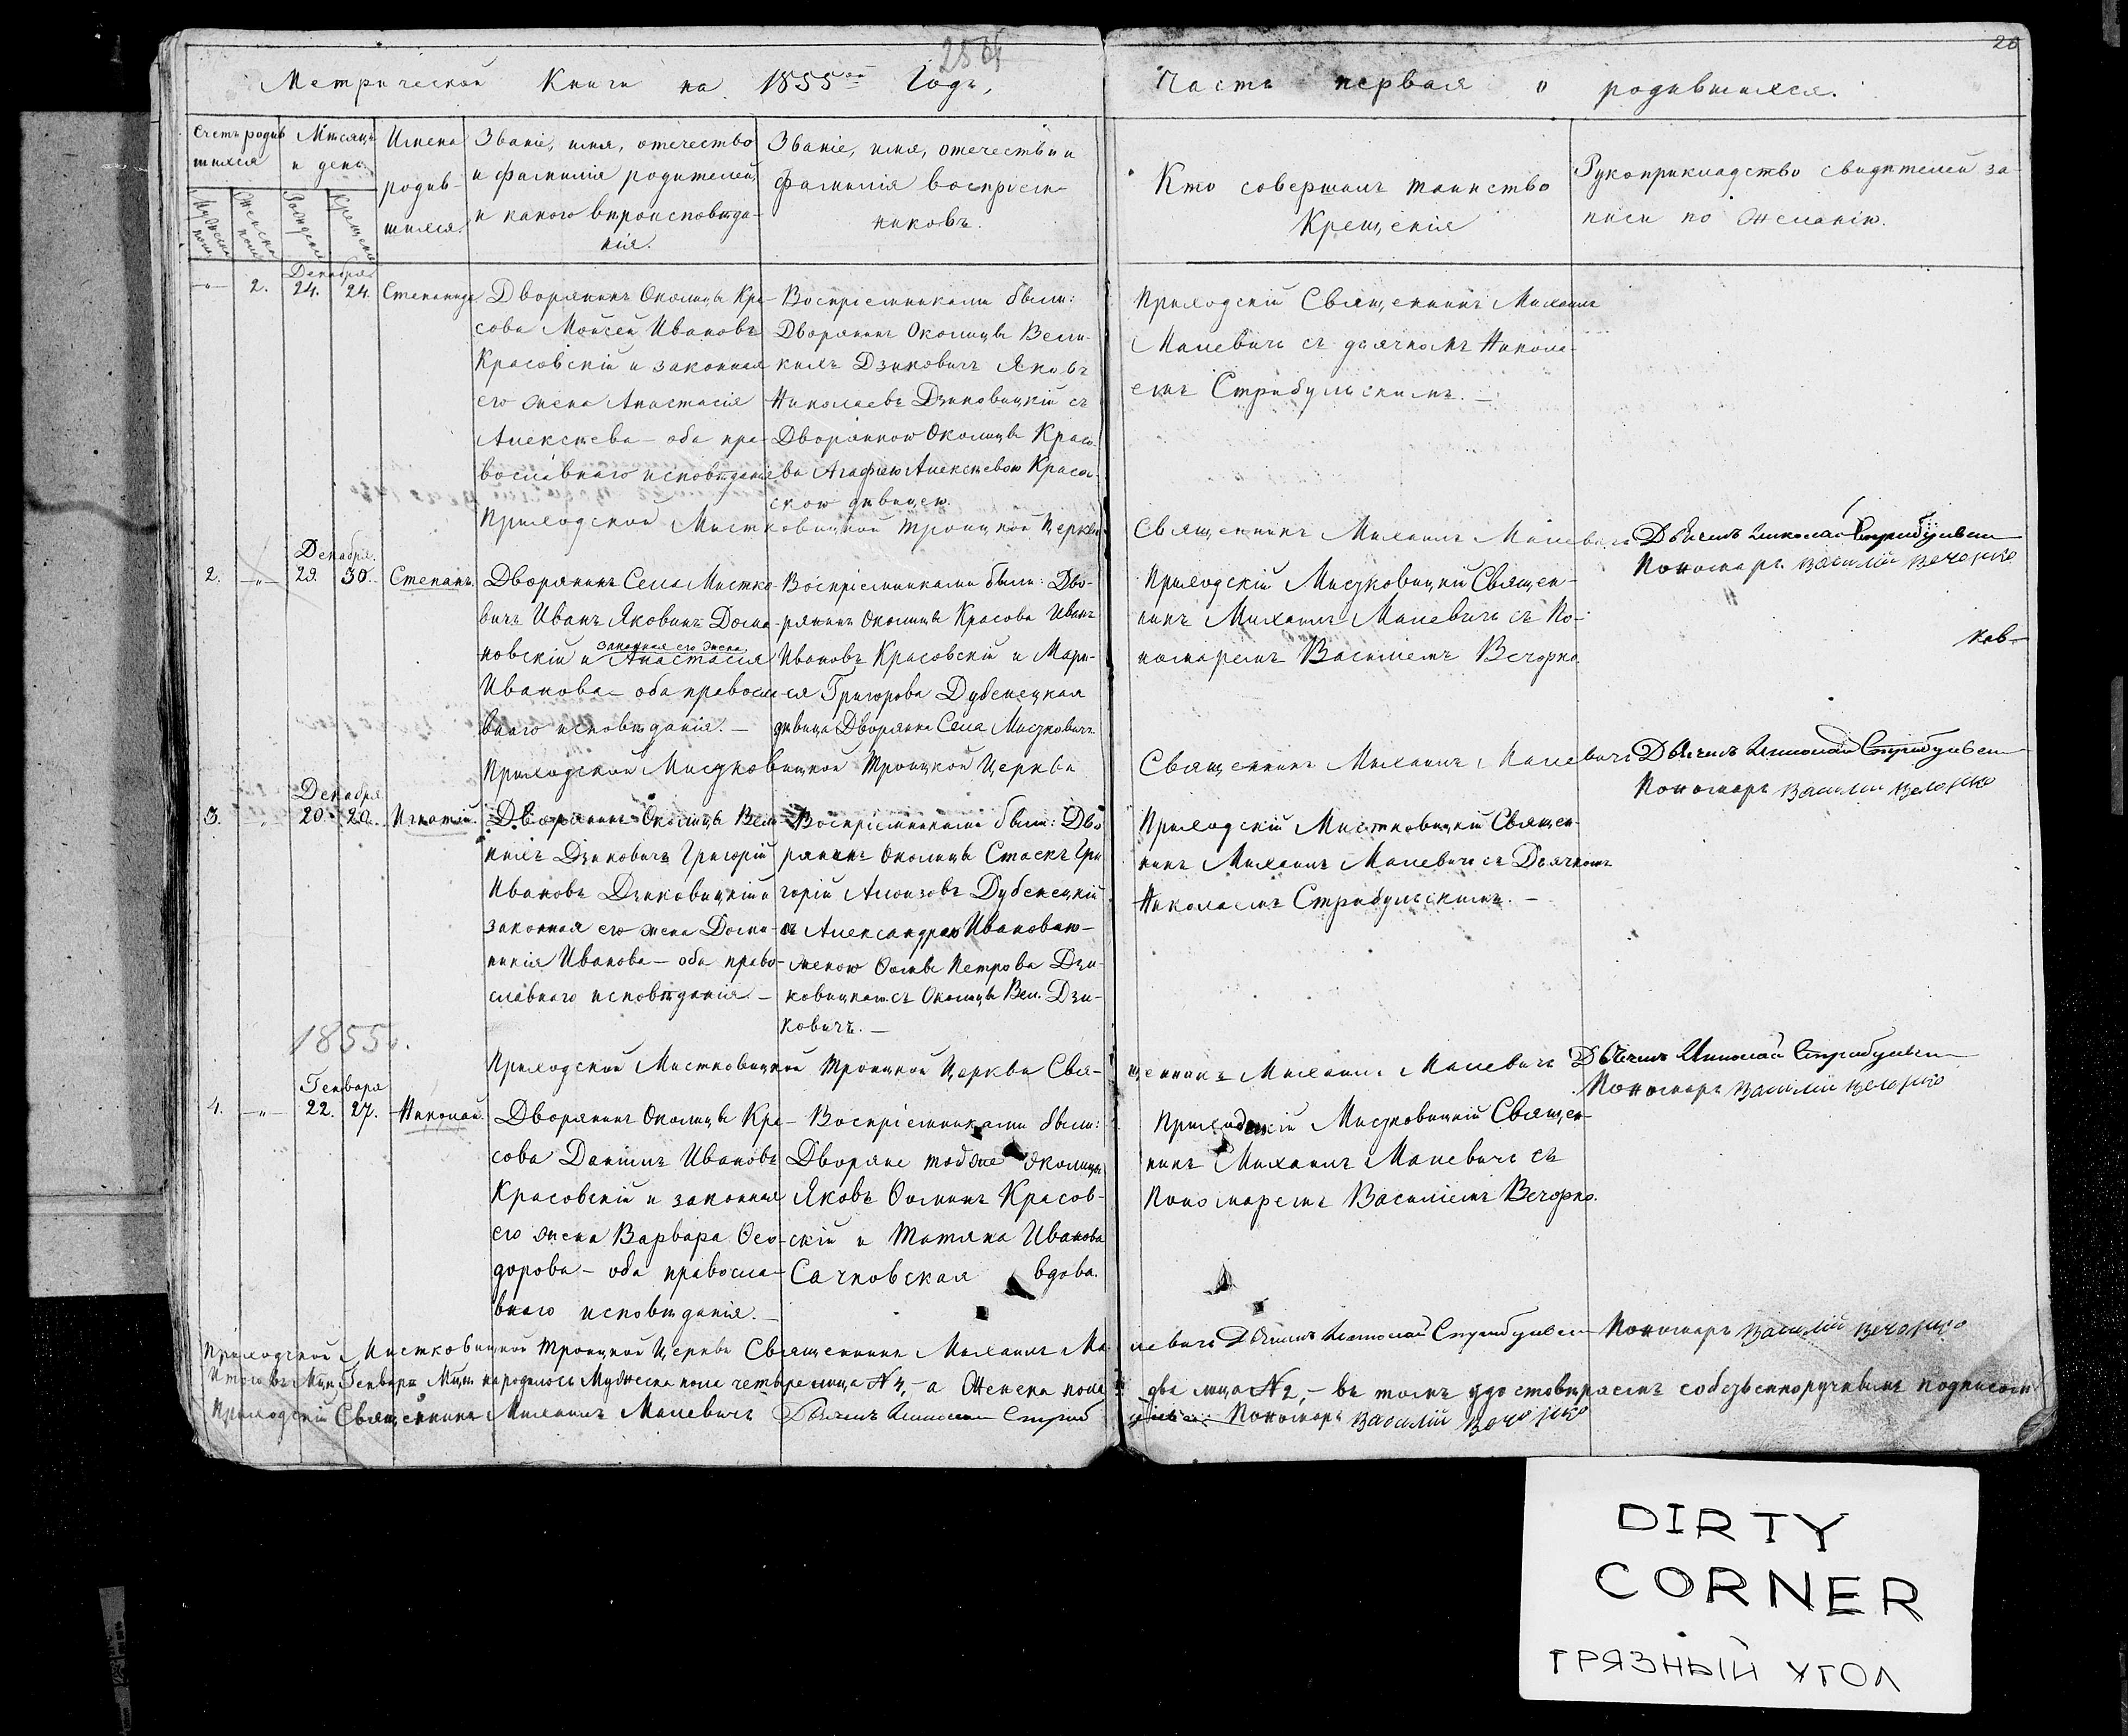 Метрической Книги на 1855ый Годъ,
Часть первая о родившихся.
20
Счетъ родив
шихся
Мѣсяцъ
и день
Имена
родив-
шихся.
Званіе, имя, отечество
и фамилія родителей,
и какого вѣроисповѣда-
нія.
Званіе, имя, отечество и
фамилія воспріем-
никовъ.
Кто совершалъ таинство
Крещенія
Рукоприкладство свидѣтелей за-
писи по желанію.
Мужеска
пола
Женска
пола
Рожденія
Крещенія
Декабря
2. 24. 24. Степанида
Дворянинъ Околицы Кра-
сова Моисей Ивановъ
Красовскій и законная
его жена Анастасія
Алексѣева – оба пра-
вославнаго исповѣданія
Воспріемниками были:
Дворянинъ Околицы Вели-
кихъ Дзиковичъ Яковъ
Николаевъ Дзиковицкій съ
Дворянкою Околицы Красо-
ва Агафіею Алексѣевою Красов-
скою дѣвицею.
Приходскій Священникъ Михаилъ
Малевичъ съ дьячкомъ Никола-
емъ Стрибульскимъ. –
Приходской Мистковицкой Троицкой Церкви
Священникъ Михаилъ Малевичъ Дьячекъ Николай Стрибульскій
Пономарь Василій Вечорко
Декабря.
2. –"– 29. 30. Степанъ.
Дворянинъ Села Мистко-
вичъ Иванъ Яковинъ Дома-
новскій и законная его жена Анастасія
Иванова – оба правосла-
внаго исповѣданія. –
Воспріемниками были: Дво-
рянинъ Околицы Красова Иванъ
Ивановъ Красовскій и Мари-
ся Григорова Дубенецкая
дѣвица Дворянка Села Мисцковичъ
Приходскій Мисцковицкій Священ-
никъ Михаилъ Малевичъ съ По-
номаремъ Василіемъ Вечорко
ков-
Приходской Мисцковицкой Троицкой Церкви
Священникъ Михаилъ Малевичъ Дьячекъ Николай Стрибульскій
Пономарь Василій Вечорко
Декабря
3. 20. 20. Игнатій.
Дворянинъ Околицы Вели-
кихъ Дзиковичъ Григорій
Ивановъ Дзиковицкій и
законная его жена Доми-
никія Иванова – оба право-
славнаго исповѣданія. –
Воспріемниками были: Дво
рянинъ Околицы Стаскъ Гри
горій Алоизовъ Дубенецкій
съ Александрою Ивановою –
женою Ѳомы Петрова Дзи-
ковицкаго съ Околицы Вел. Дзи-
ковичъ. –
Приходскій Мистковицкій Священ-
никъ Михаилъ Малевичъ съ Дьячкомъ
Николаемъ Стрибульскимъ. –
1855г.
Приходской Мистковицкой Троицкой Церкви Свя-
щенникъ Михаилъ Малевичъ Дьячекъ Николай Стрибульскій
Пономарь Василій Вечорко
Генваря
4. –"– 22. 27. Николай.
Дворянинъ Околицы Кра-
сова Даніилъ Ивановъ
Красовскій и законная
его жена Варвара Ѳео-
дорова – оба правосла-
внаго исповѣданія. –
Воспріемниками были:
Дворяне тойже Околицы
Яковъ Ѳоминъ Красов-
скій и Татяна Иванова
Сачковская вдова.
Приходскій Мисцковицкій Священ-
никъ Михаилъ Малевичъ съ
Пономаремъ Василіемъ Вечорко.
Приходской Мистковицкой Троицкой Церкви Священникъ Михаилъ Ма-
левичъ Дьячекъ Николай Стрибульскій Пономарь Василій Вечорко
Итого въ Мцѣ Генварѣ Мцѣ народилось Мужеска пола четыре лица № 4, – а Женска пола
два лица № 2, – въ томъ удостовѣряемъ собственноручнымъ подписомъ
Приходскій Священникъ Михаилъ Малевичъ Дьячекъ Николай Стриб
ульскій Пономарь Василій Вечорко
DIRTY
CORNER
ГРЯЗНЫЙ УГОЛ